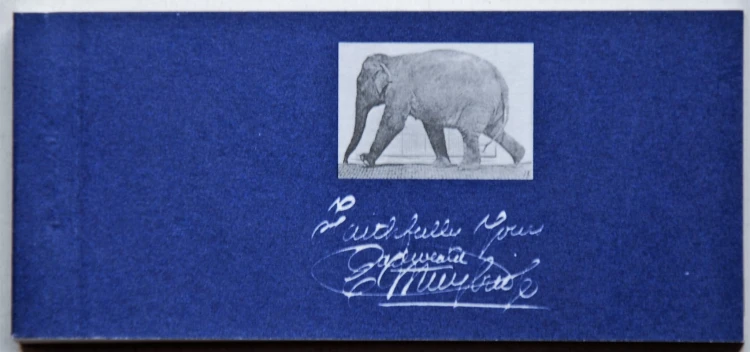 Faithfully Yours
Eadweard
Muybridge